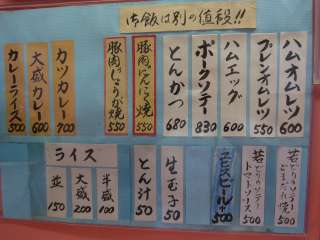 御飯は別の値段!!
ハムオムレツ 600
プレンオムレツ 550
ハムエッグ 600
ポークソテー 830
とんかつ 680
豚肉にんにく焼 550
豚肉しょうが焼 550
カツカレー 700
大盛カレー 600
カレーライス 500
若どりのソテー 500
若どりのソテー
トマトソース 500
ヱビスビール 500
生玉子 50
とん汁 50
ライス
半盛 100
大盛 200
並 150